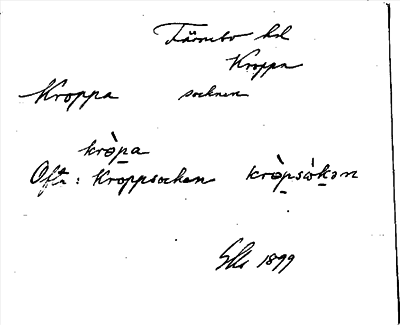 Färnebo hd
Kroppa
Kroppa socknen
krò̱pa
Oft: Kroppsocken krò̱psòkən
1899